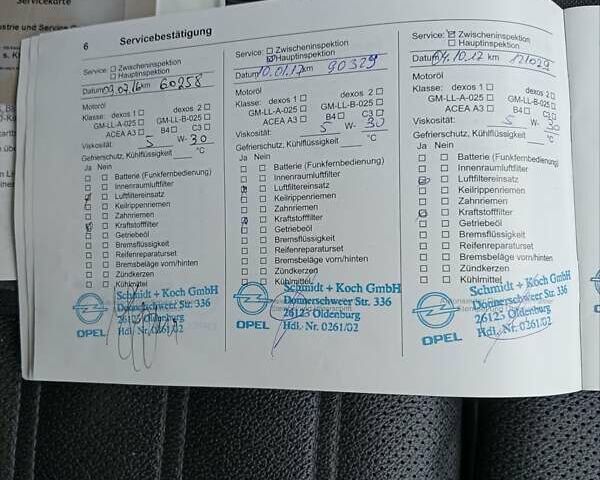 Servicekarte
6 Servicebestätigung
Service: ☐ Zwischeninspektion
☐ Hauptinspektion
Datum 09.07.16 km 60258
Motoröl
Klasse: dexos 1 ☐ dexos 2 ☐
GM-LL-A-025 ☐ GM-LL-B-025 ☐
ACEA A3 ☐ B4 ☐ C3 ☐
Viskosität: 5 W- 30
Gefrierschutz, Kühlflüssigkeit °C
Ja Nein
☐ ☐ Batterie (Funkfernbedienung)
☐ ☐ Innenraumluftfilter
☑ ☐ Luftfiltereinsatz
☐ ☐ Keilrippenriemen
☐ ☐ Zahnriemen
☑ ☐ Kraftstofffilter
☐ ☐ Getriebeöl
☐ ☐ Bremsflüssigkeit
☐ ☐ Reifenreparaturset
☐ ☐ Bremsbeläge vorn/hinten
☐ ☐ Zündkerzen
☐ ☐ Kühlmittel
OPEL
Schmidt + Koch GmbH
Donnerschweer Str. 336
26123 Oldenburg
Hdl. Nr. 0261/02
Service: ☐ Zwischeninspektion
☑ Hauptinspektion
Datum 10.01.17 km 90329
Motoröl
Klasse: dexos 1 ☐ dexos 2 ☐
GM-LL-A-025 ☐ GM-LL-B-025 ☐
ACEA A3 ☐ B4 ☐ C3 ☐
Viskosität: 5 W- 30
Gefrierschutz, Kühlflüssigkeit °C
Ja Nein
☐ ☐ Batterie (Funkfernbedienung)
☐ ☐ Innenraumluftfilter
☑ ☐ Luftfiltereinsatz
☐ ☐ Keilrippenriemen
☐ ☐ Zahnriemen
☑ ☐ Kraftstofffilter
☐ ☐ Getriebeöl
☐ ☐ Bremsflüssigkeit
☐ ☐ Reifenreparaturset
☐ ☐ Bremsbeläge vorn/hinten
☐ ☐ Zündkerzen
☐ ☐ Kühlmittel
OPEL
Schmidt + Koch GmbH
Donnerschweer Str. 336
26123 Oldenburg
Hdl. Nr. 0261/02
Service: ☑ Zwischeninspektion
☐ Hauptinspektion
Datum 04.10.17 km 121029
Motoröl
Klasse: dexos 1 ☐ dexos 2 ☐
GM-LL-A-025 ☐ GM-LL-B-025 ☐
ACEA A3 ☐ B4 ☐ C3 ☐
Viskosität: 5 W- 30
Gefrierschutz, Kühlflüssigkeit °C
Ja Nein
☐ ☐ Batterie (Funkfernbedienung)
☐ ☐ Innenraumluftfilter
☑ ☐ Luftfiltereinsatz
☐ ☐ Keilrippenriemen
☐ ☐ Zahnriemen
☑ ☐ Kraftstofffilter
☐ ☐ Getriebeöl
☐ ☐ Bremsflüssigkeit
☐ ☐ Reifenreparaturset
☐ ☐ Bremsbeläge vorn/hinten
☐ ☐ Zündkerzen
☐ ☐ Kühlmittel
OPEL
Schmidt + Koch GmbH
Donnerschweer Str. 336
26123 Oldenburg
Hdl. Nr. 0261/02